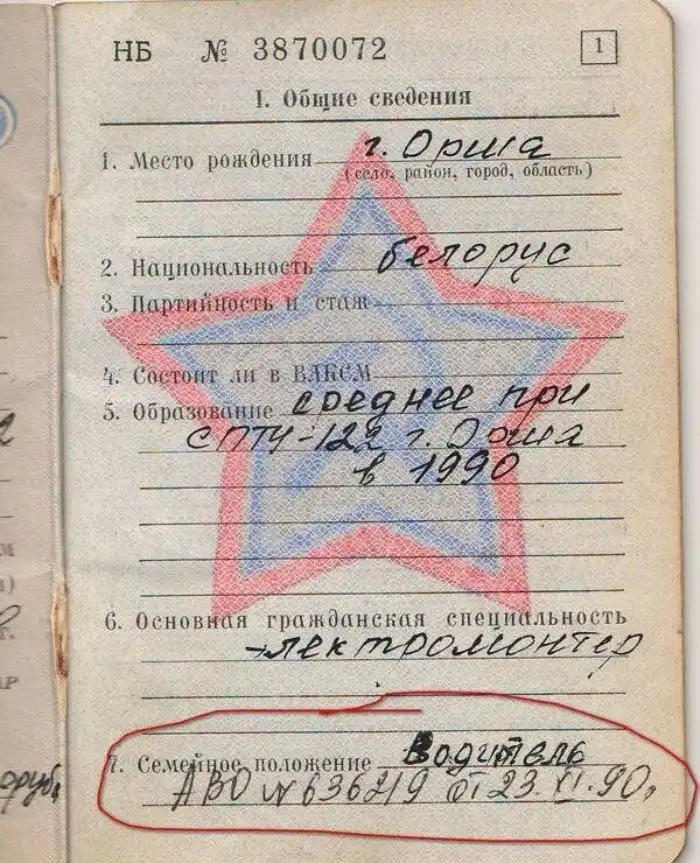 НБ № 3870072 1
I. Общие сведения
1. Место рождения г. Орша
(село, район, город, область)
2. Национальность белорус
3. Партийность и стаж
4. Состоит ли в ВЛКСМ
5. Образование среднее при
СПТУ-122 г. Орша
в 1990
6. Основная гражданская специальность
электромонтер
7. Семейное положение Водитель
АВО № 636219 от 23.XI.90г.